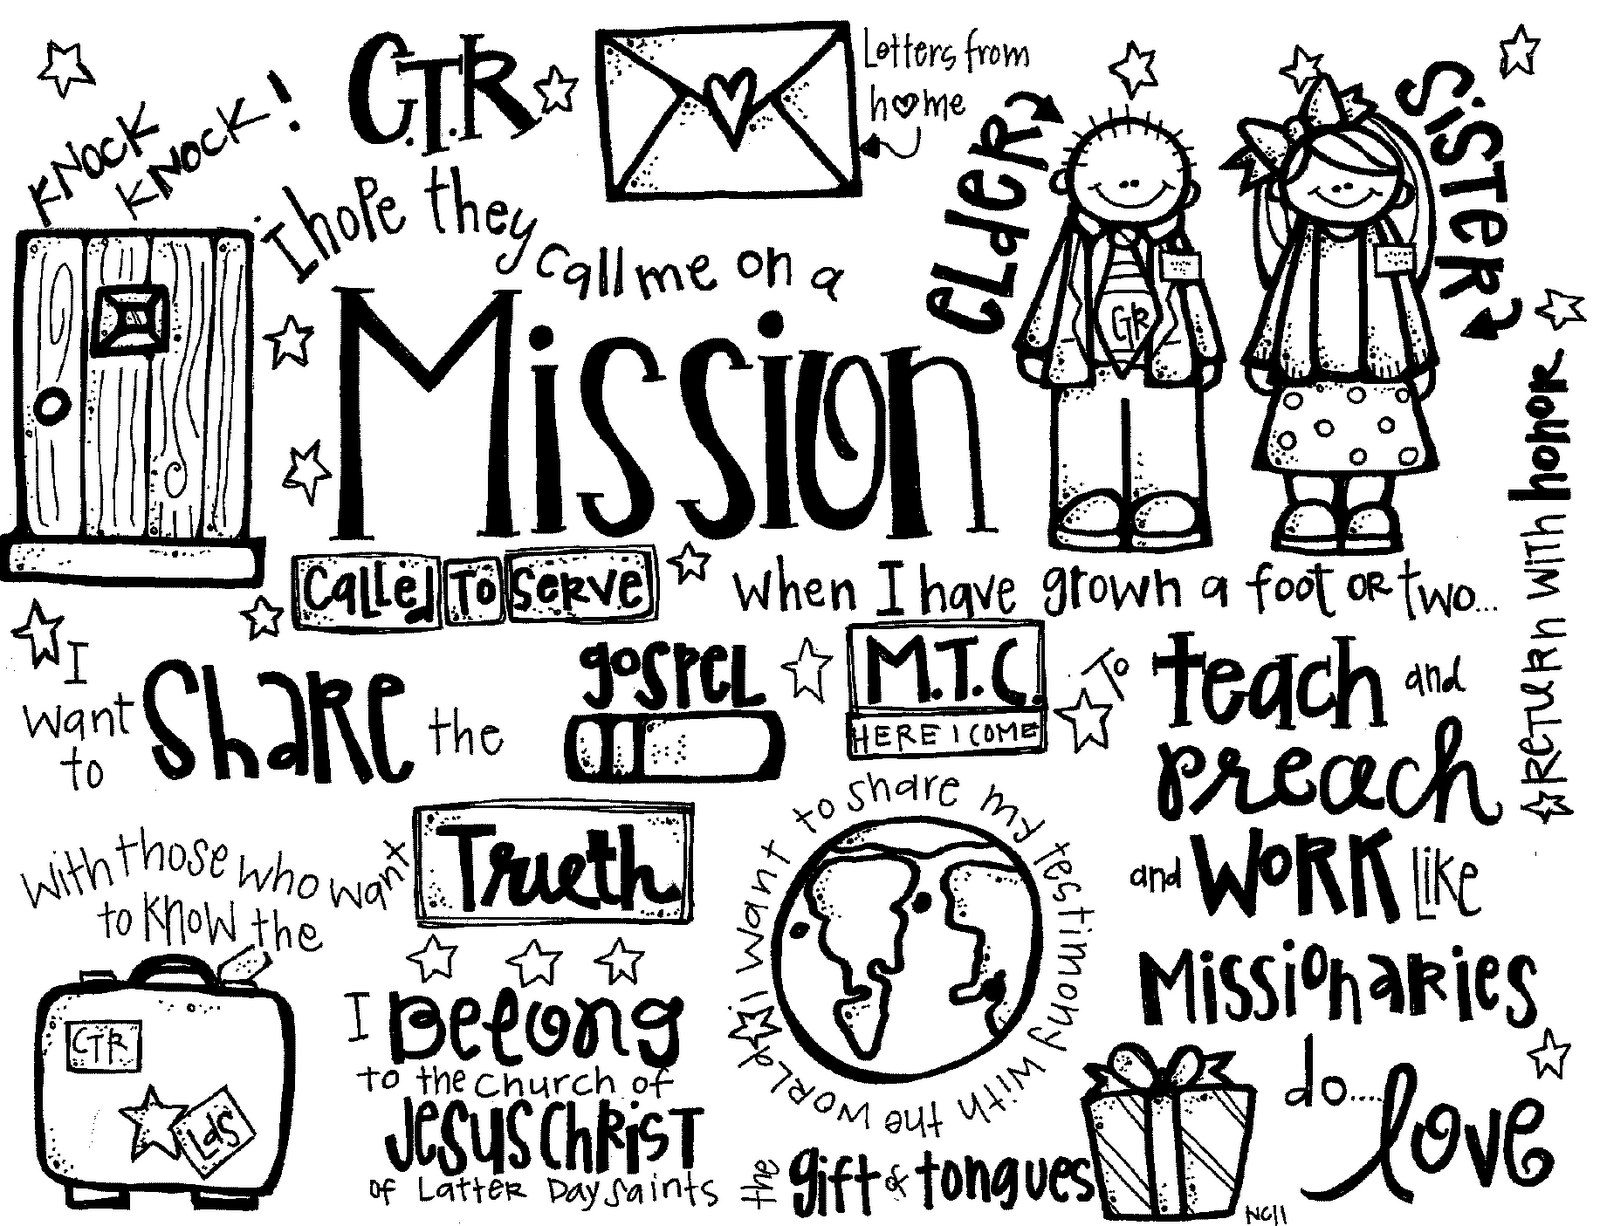 KNOCK
KNOCK!
C.T.R
Letters from
home
ELdeR
SiSTeR
I hope they
call me on a
Mission
CTR
Called To Serve
when I have grown a foot or two...
ReTuRn WiTh honoR
I
want
to
ShaRe
the
gospel
M.T.C.
HERE I COME
To
teach and
preach
and WoRK Like
Missionaries
do....
love
with those who want
to know the
Trueth
i want to share my testimony with the world
CTR
LdS
I Belong
to the church of
Jesus Christ
of Latter Day saints
the gift of tongues
NC11